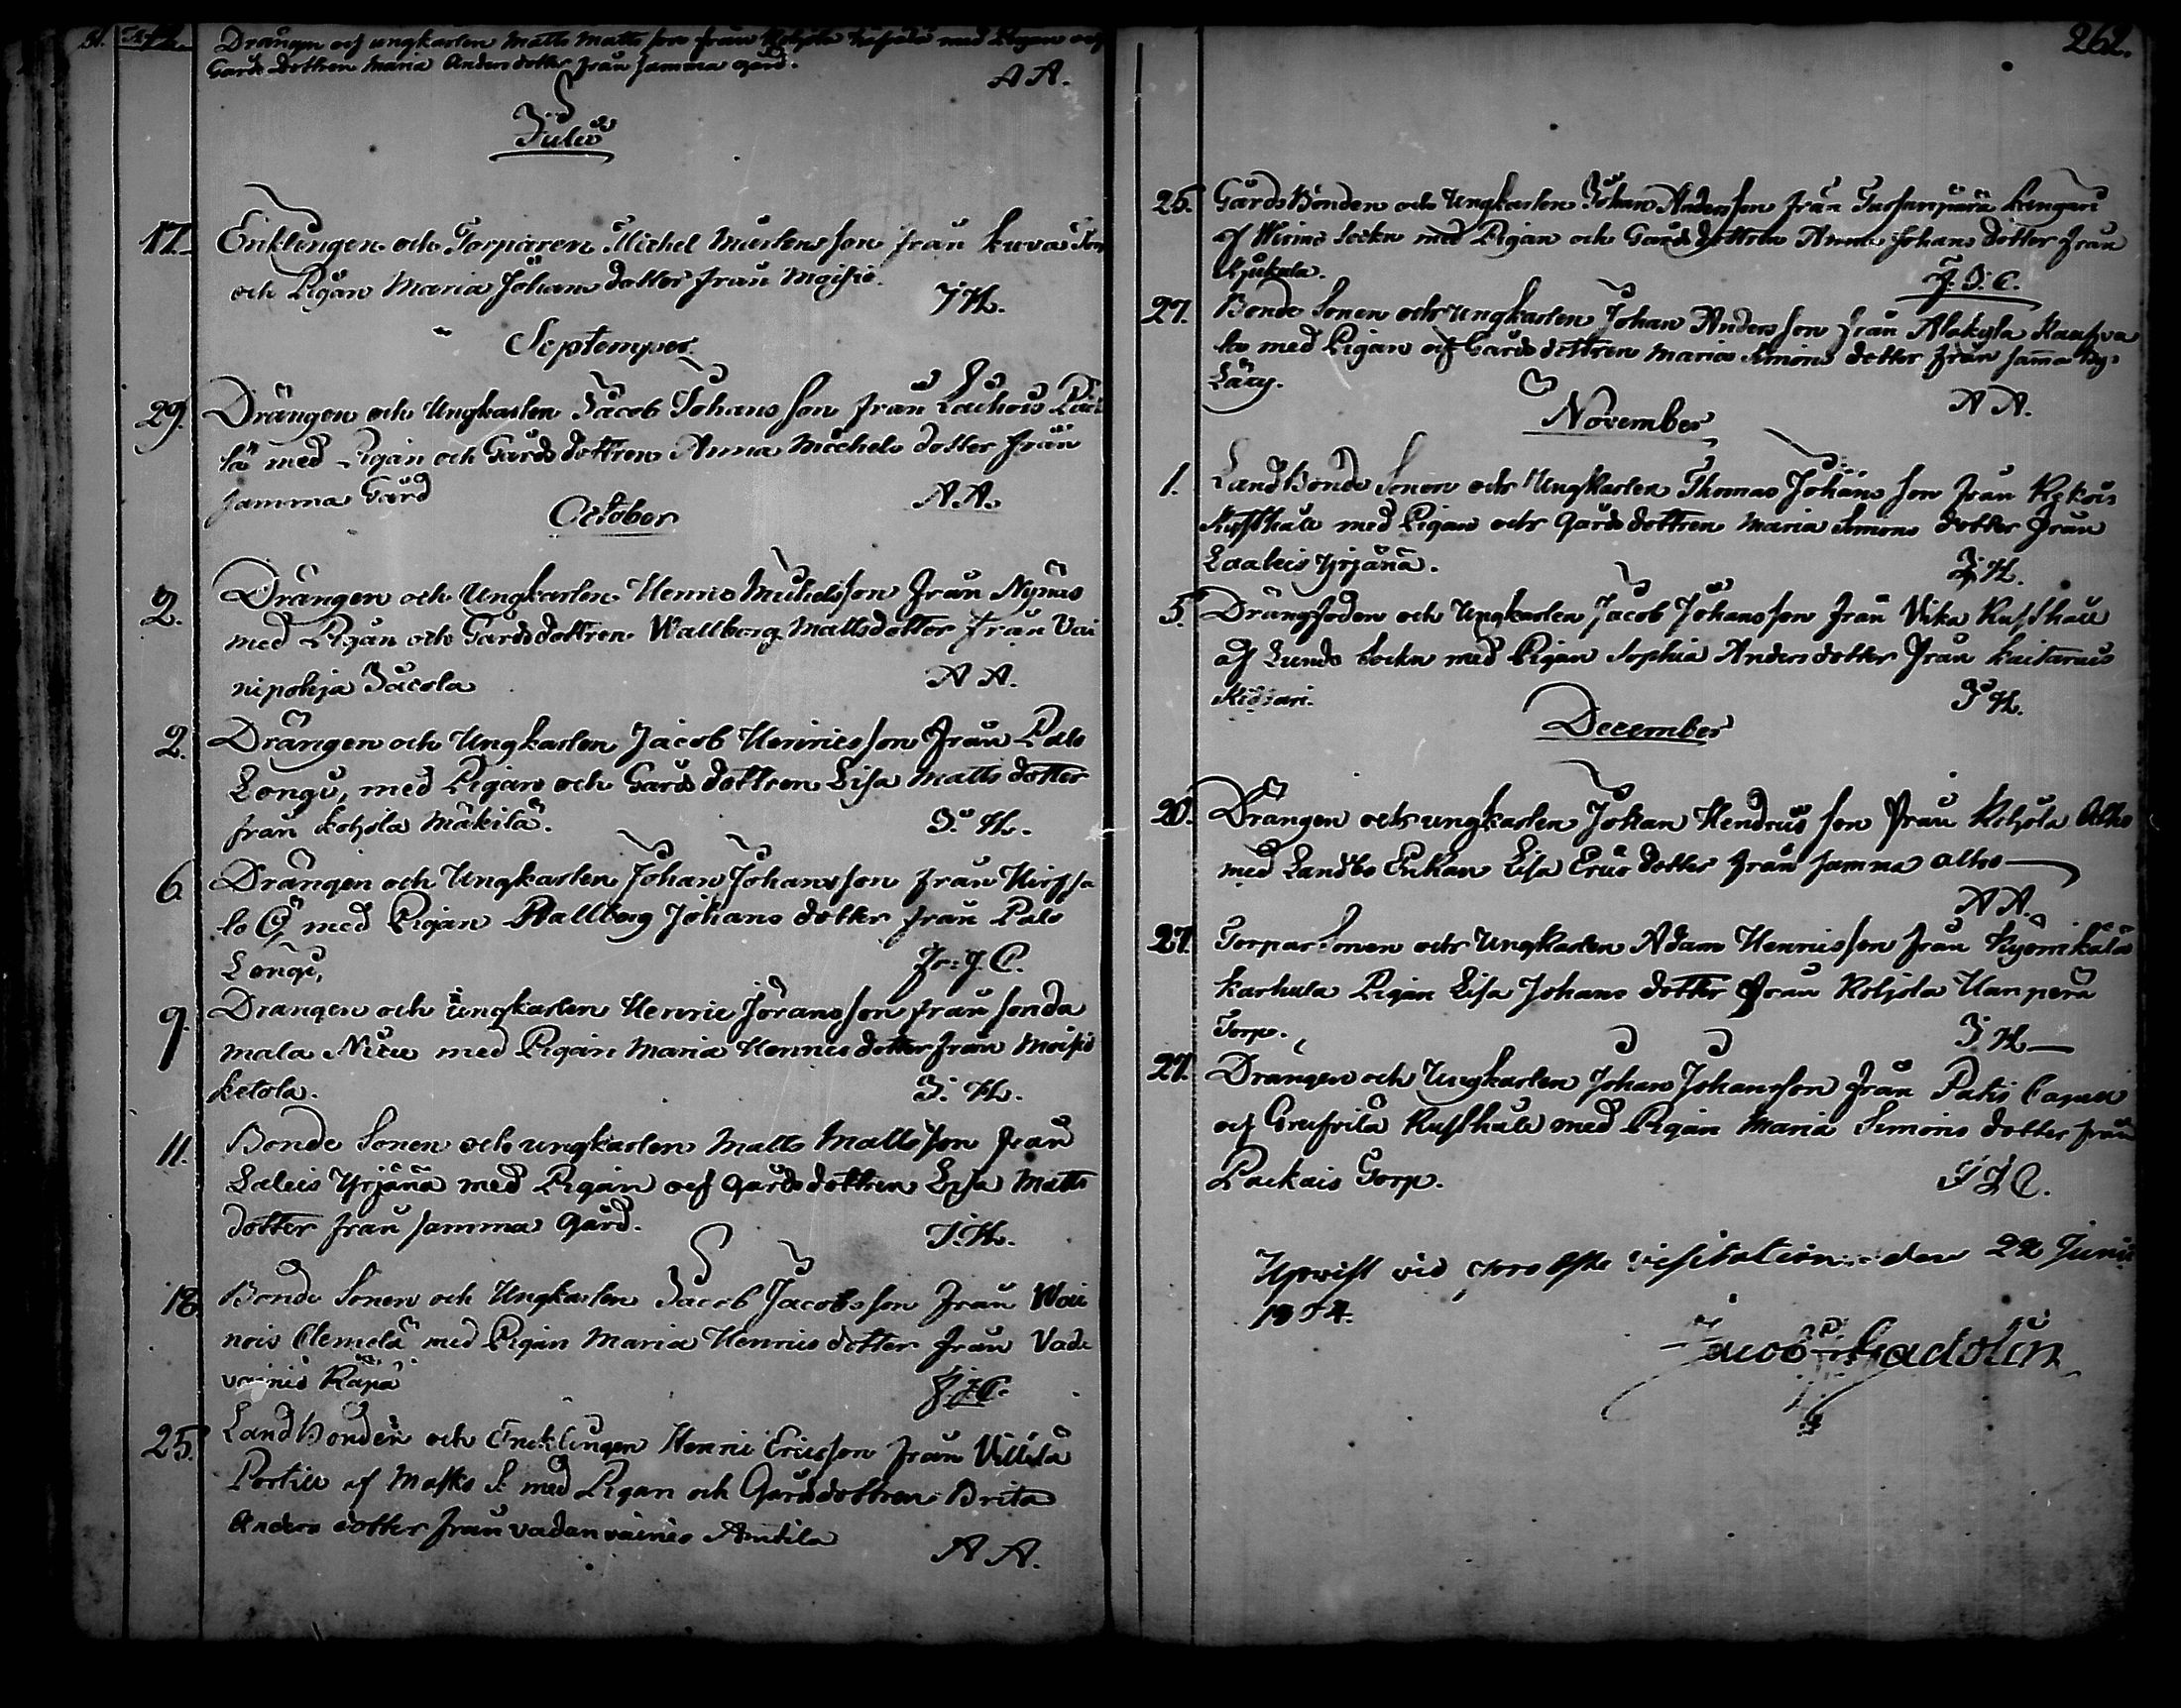 Drängen och ungkarlen Matts Matts son från Kohjola med Pigan och
Gards dottren Maria Anders dotter från samma gård.
A A.
Julio
17. Enklingen och Torparen Michel Mårtens son från Kuvas Torp
och Pigan Maria Johans dotter från Moisio.
J H.
September
29. Drängen och Ungkarlen Jacob Johans son från Laihois Päi
lä med Pigan och Gårds dottren Anna Michels dotter från
samma Gård
A A.
October
2. Drängen och Ungkarlen Henric Michelsson från Nynäs
med Pigan och Gårdsdottren Wallborg Mattsdotter från Vai
nipohja Jacola
A A.
2. Drängen och Ungkarlen Jacob Henricsson från Palo
Longi, med Pigan och Gårds dottren Lisa Matts dotter
från Kohjola Mäkilä.
J. H.
6. Drängen och Ungkarlen Johan Johansson från Kirjsa
lo Ö, med Pigan Wallborg Johans dotter från Palo
Longi,
Jr: J C.
9. Drängen och ungkarlen Henric Jöransson från Sonda
mala Niu med Pigan Maria Henrics dotter från Moisio
Ketola.
J. H.
11. Bonde Sonen och ungkarlen Matts Mattsson från
Laleis Yrjänä med Pigan och gårdsdottren Lisa Matts
dotter från samma Gård.
J. H.
18. Bonde Sonen och Ungkarlen Jacob Jacobsson från Wai
nois Clemelä med Pigan Maria Henrics dotter från Vadi
vainio Räpä
J: J C.
25. Land Bonden och Encklingen Henric Ericsson från Villila
Portill af Masko S. med Pigan och Gårdsdottren Brita
Anders dotter från Vadanvainio Anttila
A A.
262.
25. Gårds Bonden och Ungkarlen Johan Andersson från Tursunpärä Kangari
af Wirmo Sockn med Pigan och Gårds dottren Anna Johans dotter från
Kjukala.
J. J. C.
27. Bonde Sonen och Ungkarlen Johan Andersson från Alakyla
med Pigan och Gårds dottren Maria Simons dotter från samma By
Läcy.
A A.
November
1. Land Bonde Sonen och Ungkarlen Thomas Johans son från Kykois
Rusthåll med Pigan och gårds dottren Maria Simons dotter från
Laaleis Yrjänä.
J H.
5. Drängfoden och Ungkarlen Jacob Johansson från Vika Rusthåll
af Lundo Sockn med Pigan Sophia Anders dotter från Kaitarais
Kidiari.
J H.
December
20. Drängen och ungkarlen Johan Hendrics son från Kohjola Alho
med Landbo Enkan Lisa Erics dotter från samma alho
A A.
27. Torpar Sonen och Ungkarlen Adam Henricsson från Kyönikälä
Karhula Pigan Lisa Johans dotter från Kohjola Hanperä
Torp.
J H
27. Drängen och Ungkarlen Johan Johansson från Patis Capell
och Rusthåll med Pigan Maria Simons dotter från
Packais Torp.
J J C.
Upvist vid probsts visitation den 22 Junii
1774.
Jacob Gadolin